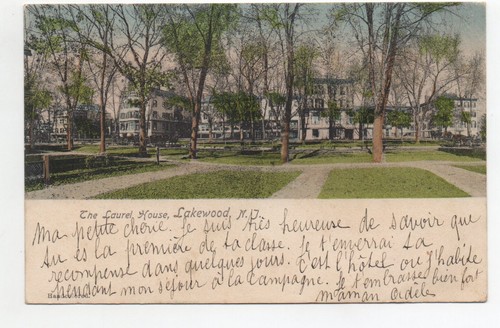 The Laurel House, Lakewood, N.J.
Ma petite cherie. Je suis très heureuse de savoir que
tu es la première de ta classe. Je t'enverrai ta
recompense dans quelques jours. C'est l'hôtel ou j'habite
pendant mon séjour à la Campagne. Je t'embrasse bien fort
maman Adèle